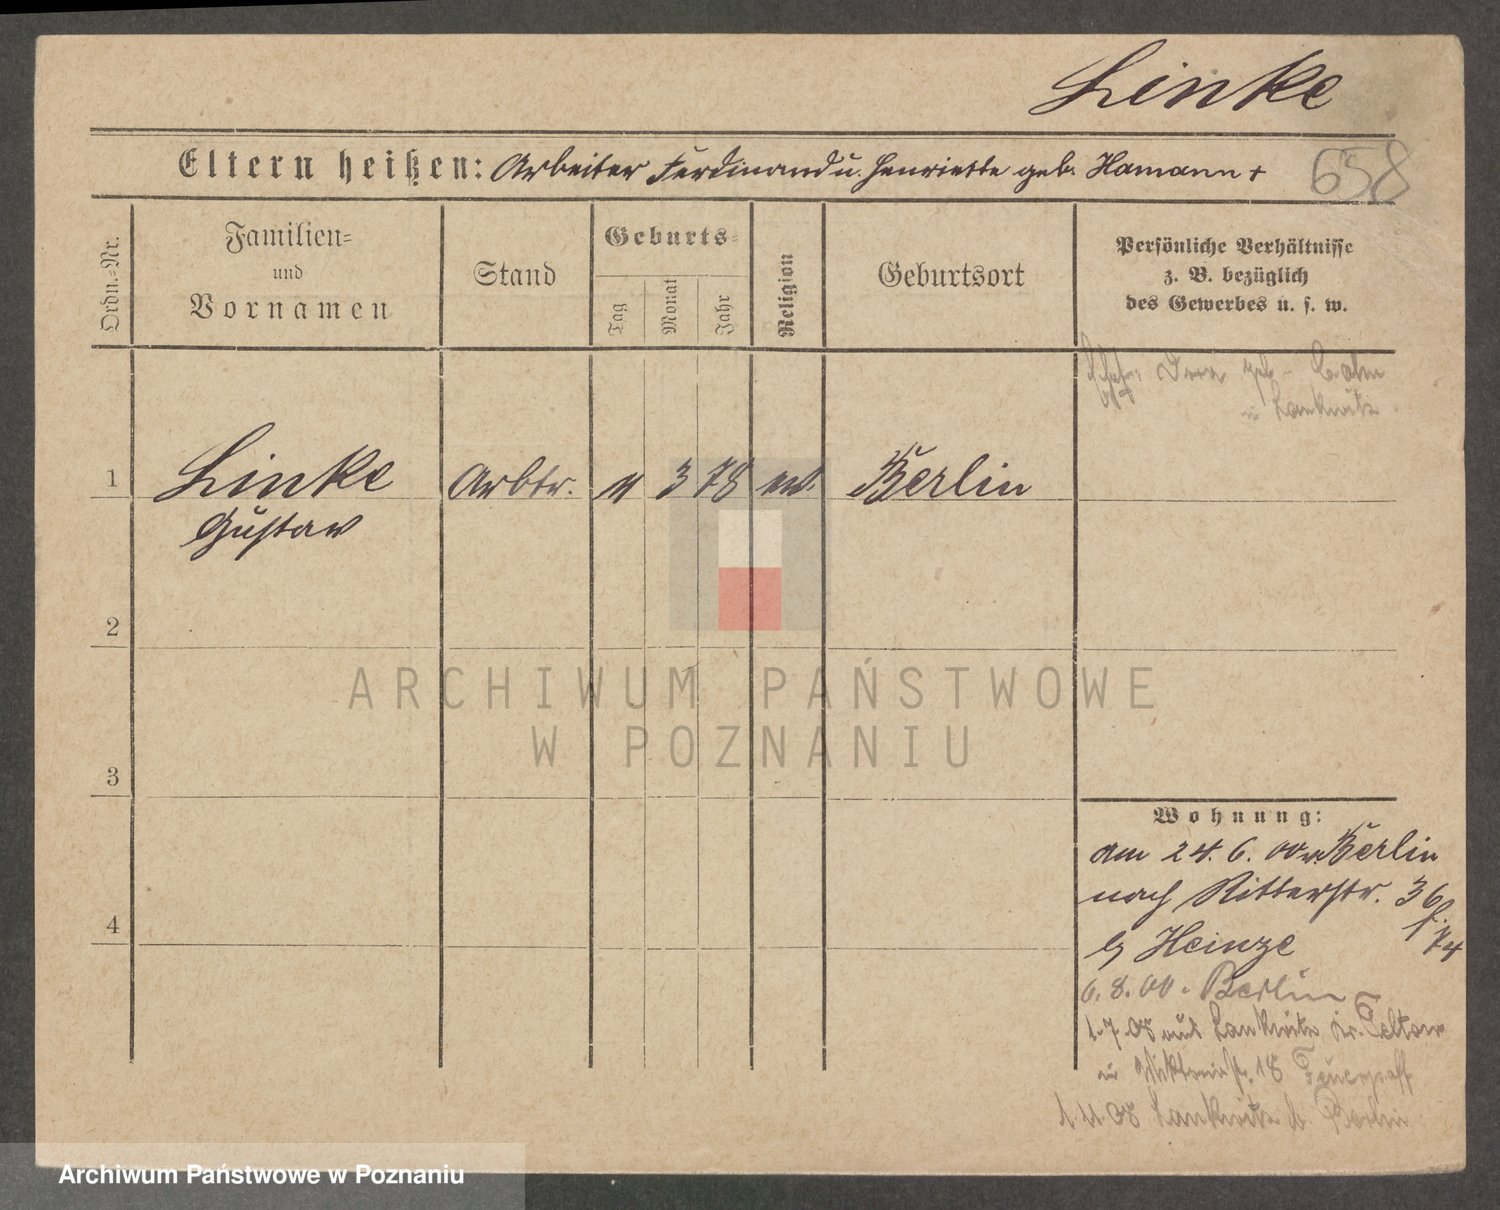 Linke
Eltern heißen: Arbeiter Ferdinand u. Henriette geb. Hamann +
658
Ordn.=Nr.
Familien=
und
Vornamen
Stand
Geburts=
Tag
Monat
Jahr
Religion
Geburtsort
Persönliche Verhältnisse
z. B. bezüglich
des Gewerbes u. s. w.
geb.
Lankwitz
1 Linke Arbtr. 3 78 ev. Berlin
Gustav
2
3
4
ARCHIWUM PAŃSTWOWE
W POZNANIU
Wohnung:
am 24. 6. 00 v. Berlin
nach Ritterstr. 36
Heinze
6. 8. 00. Berlin
1.7.08 aus Lankwitz Kr. Teltow
18
1.11.08 Lankwitz b Berlin
Archiwum Państwowe w Poznaniu